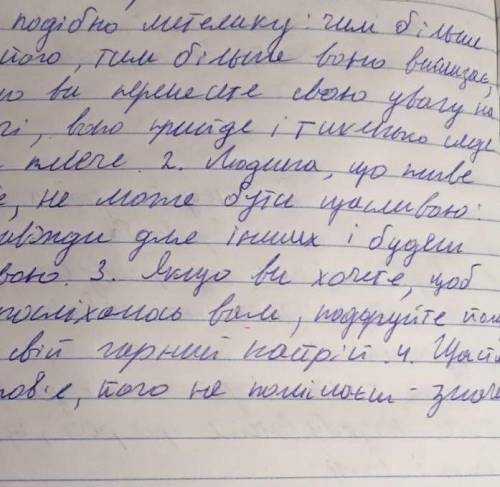 подібно метелику: чим більше
його, тим більше воно вислизає,
ви перенесете свою увагу на
чі, воно прийде і тихенько сяде
плече. 2. Людина, що живе
не може бути щасливою:
завжди для інших і будеш
вою. 3. Якщо ви хочете, щоб
посміхалось вам, подаруйте йом
свій гарний настрій. 4. Щаст
ров'є, його не помічаєш - знач